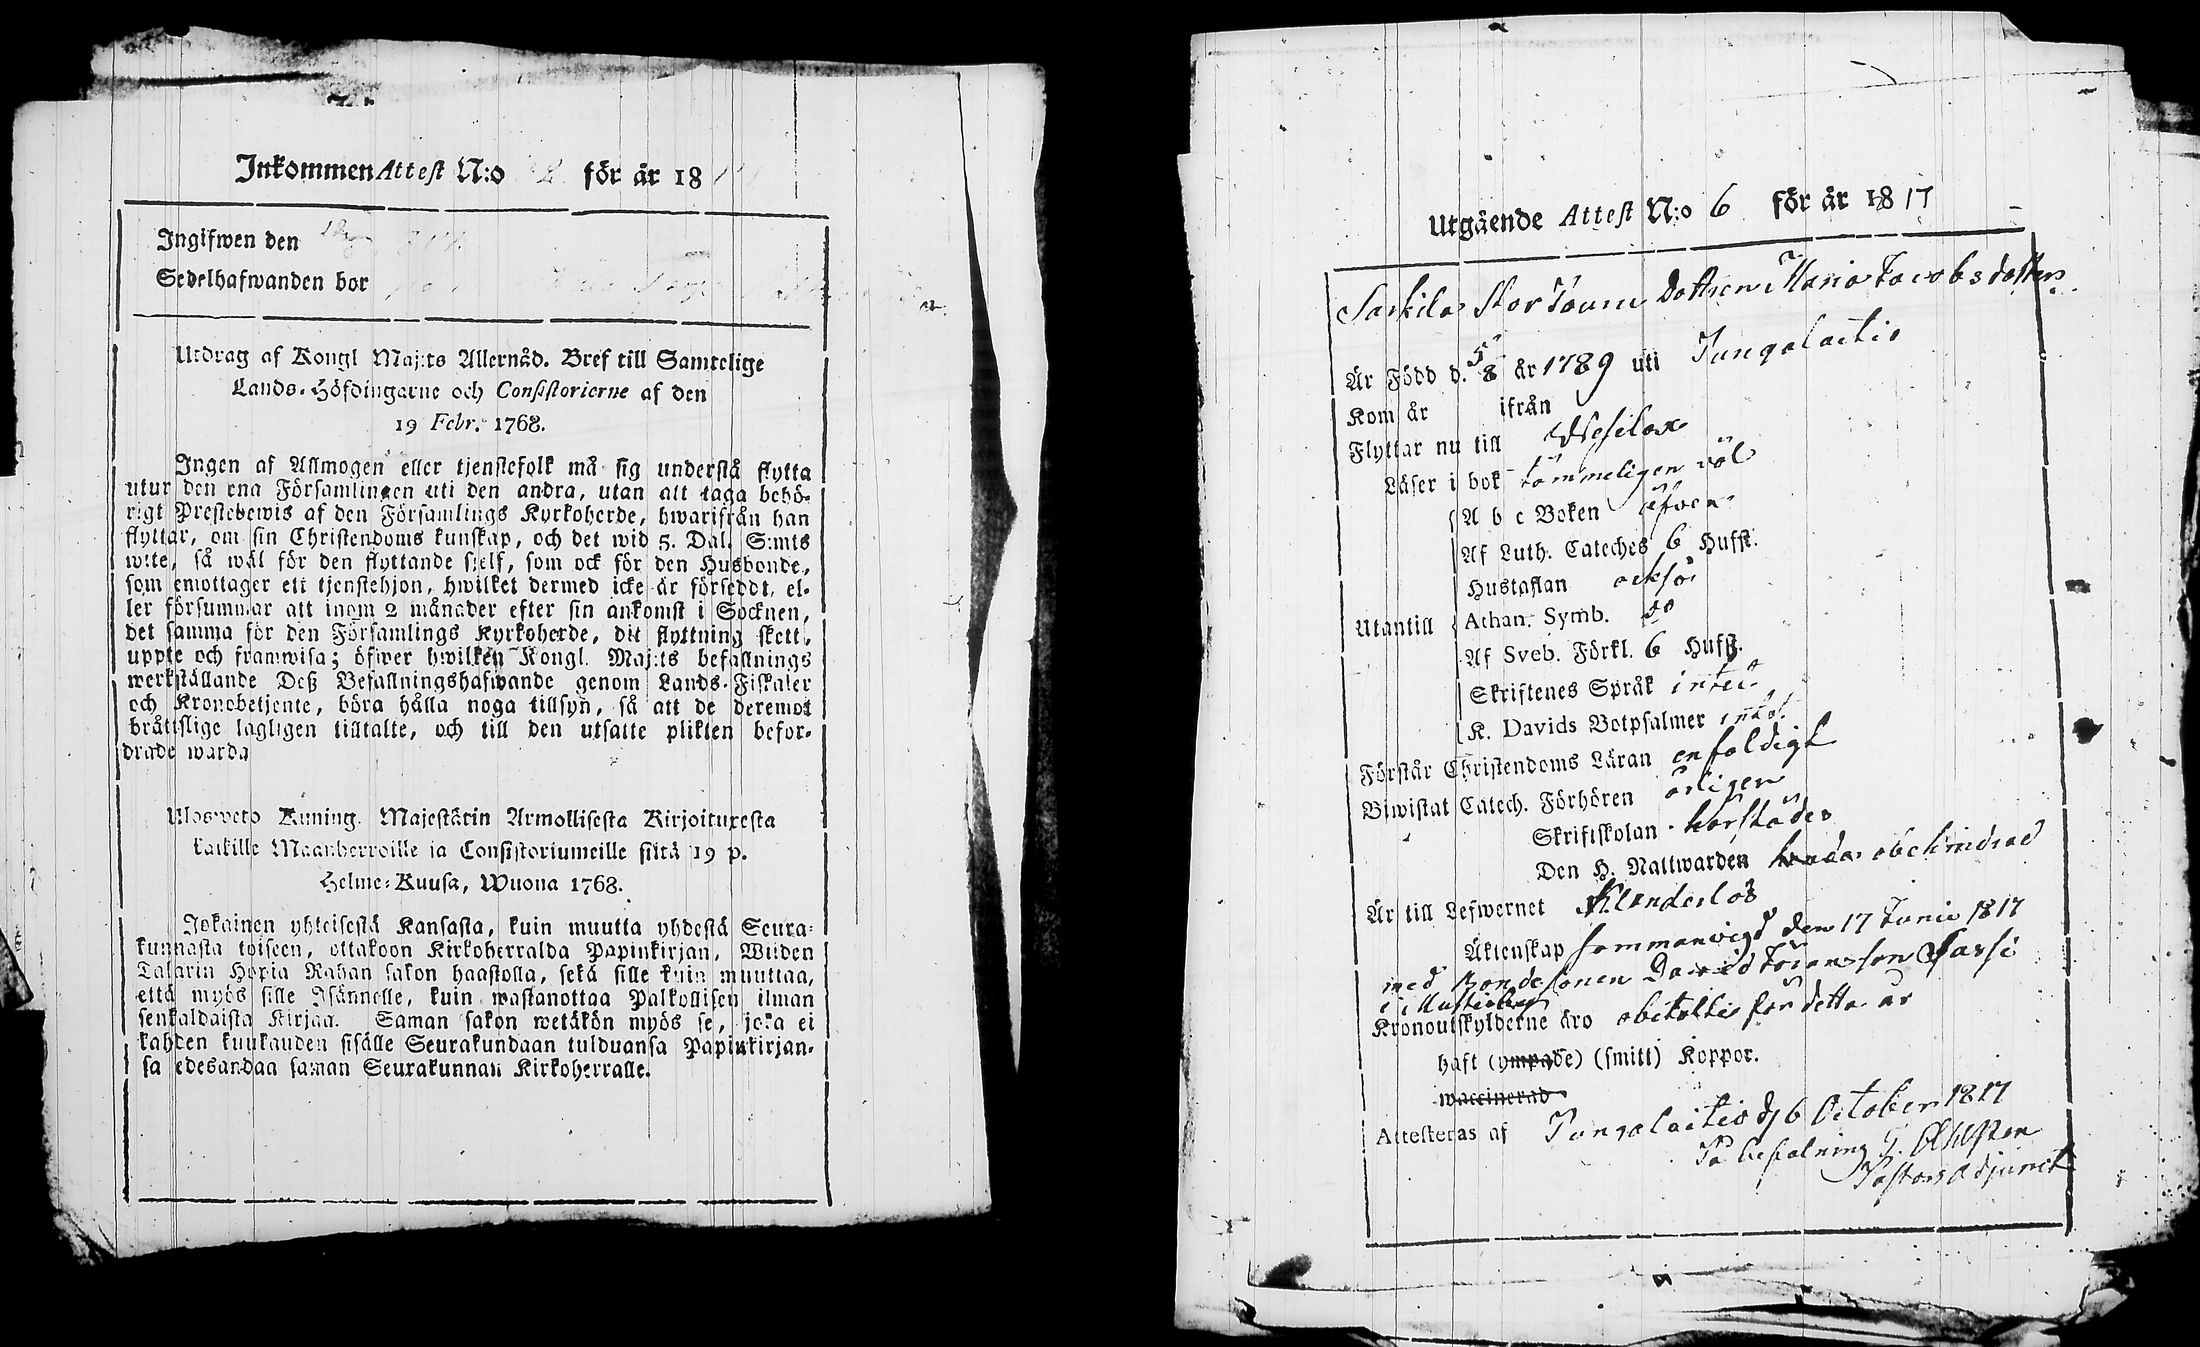 Inkommen Attest N:o för år 18
Ingifwen den
Sedelhafwanden bor
Utdrag af Kongl Maj:ts Allernåd. Bref till Samtelige
Lands-Höfdingarne och Consistorierne af den
19 Febr. 1768.
Ingen af Allmogen eller tjenstefolk må sig understå flytta
utur den ena Församlingen uti den andra, utan att taga behö-
rigt Prestebewis af den Församlings Kyrkoherde, hwarifrån han
flyttar, om sin Christendoms kunskap, och det wid 5. Dal. S:mts
wite, så wäl för den flyttande sjelf, som ock för den Husbonde,
som emottager ett tjenstehjon, hwilket dermed icke är försedt, el-
ler försummar att inom 2 månader efter sin ankomst i Socknen,
det samma för den Församlings Kyrkoherde, dit flyttning skett,
uppte och framwisa; öfwer hwilken Kongl. Maj:ts befallnings
werkställande Deß Befallningshafwande genom Lands-Fiskaler
och Kronobetjente, böra hålla noga tillsyn, så att de deremot
bråttslige lagligen tilltalte, och till den utsatte plikten befor-
drade warda
Ulosweto Kuning. Majestätin Armollisesta Kirjoituxesta
kaikille Maanherroille ja Consistoriumeille siltä 19 p.
Helme-Kuusa, Wuona 1768.
Jokainen yhteisestä Kansasta, kuin muutta yhdestä Seura-
kunnasta toiseen, ottakoon Kirkoherralda Papinkirjan, Wiiden
Talarin Hopia Rahan sakon haastolla, sekä sille kuin muuttaa,
että myös sille Isännelle, kuin wastanottaa Palkollisen ilman
senkaldaista Kirjaa. Saman sakon wetäkön myös se, joka ei
kahden kuukauden sisälle Seurakundaan tulduansa Papinkirjan-
sa edesandaa saman Seurakunnan Kirkoherralle.
Utgående Attest N:o 6 för år 1817
Sarkila Stor Jouni Dottren Maria Jacobsdotter
Är Född d. 5/8 år 1789 uti Jungalaitio
Kom år ifrån
Flyttar nu till Wesilax
Läser i bok tämmeligen wäl
A b c Boken äfwen
Af Luth. Cateches 6 Hufst.
Hustaflan också
Utantill Athan. Symb. do
Af Sveb. Förkl. 6 Hufst.
Skriftenes Språk intet
K. Davids Botpsalmer intet
Förstår Christendoms Läran enfaldigt
Biwistat Catech. Förhören årligen
Skriftskolan härstädes
Den H. Nattwarden obehindrad
Är till Lefwernet Klanderlös
Äktenskap sammanvigd den 17 Junii 1817
med Bondesonen David Johansson Sassi
i
Kronoutskylderne äro obetalte för detta år
haft (ympade) (smitt) Koppor.
waccinerad
Attesteras af Jungalaitio d 6 October 1817
På befalning
Pastors Adjunct